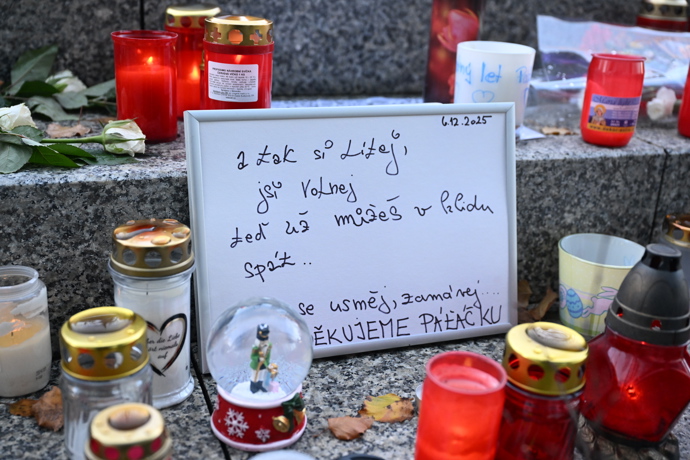 6.12.2025
a tak si Lítej,
jsi volnej
teď už můžeš v klidu
spát..
se usměj, zamávej...
ĚKUJEME PÁŤÁČKU